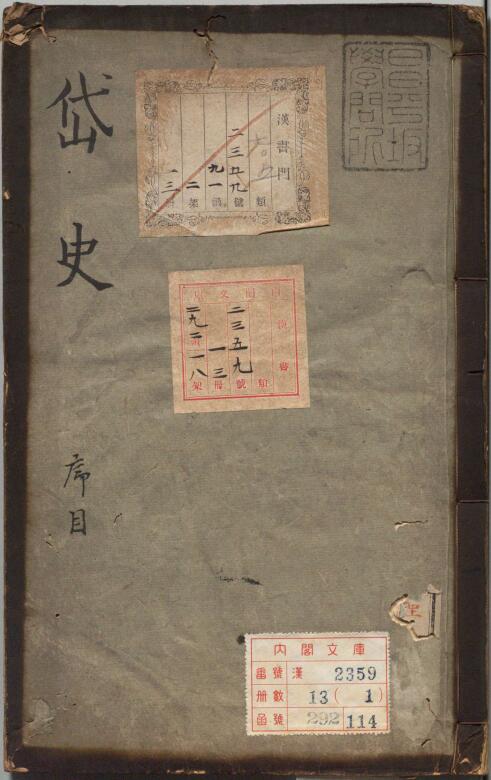 岱史
序目
昌平坂
學問所
漢書門
類
二三五九號
九一函
二架
一三冊
漢書
類
二三五九號
一三冊
二九二函
一八架
內閣文庫
番號 漢 2359
册數 13 ( 1 )
函號 292 114